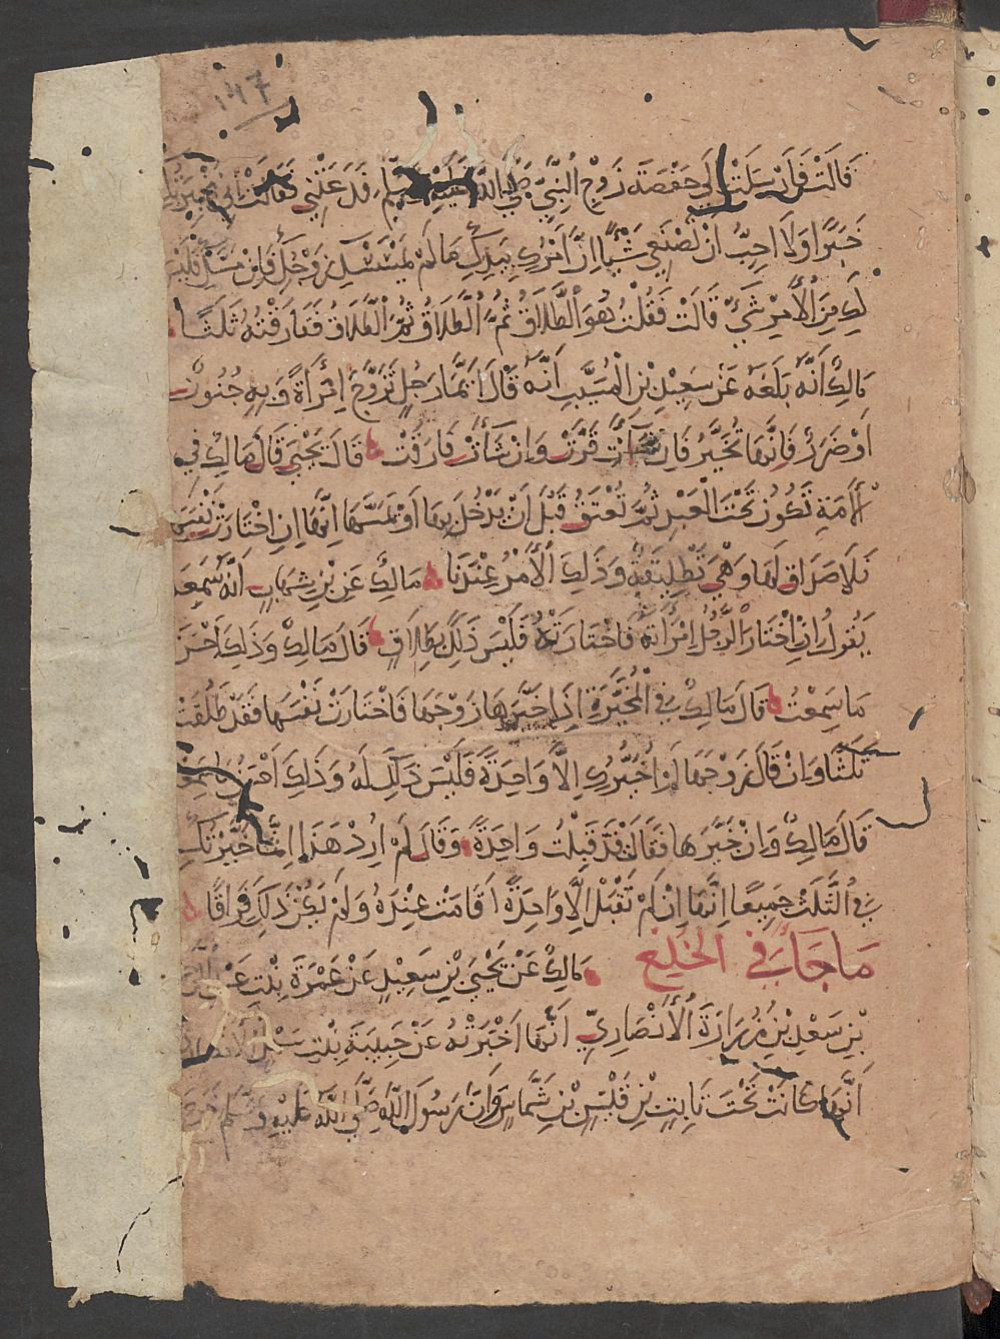 ١٤٧
قَالَتْ فَأَرْسَلَتْ إِلَى حَفْصَةَ زَوْجِ النَّبِيِّ صَلَّى اللَّهُ عَلَيْهِ وَسَلَّمَ فَدَعَتْنِي فَقَالَتْ إِنِّي مُخْبِرَتُكِ
خَبَرًا وَلَا أُحِبُّ أَنْ تَصْنَعِي شَيْئًا إِنَّ أَمْرَكِ بِيَدِكِ مَا لَمْ يَمْسَسْكِ زَوْجُكِ فَإِنْ مَسَّكِ فَلَيْسَ
لَكِ مِنَ الْأَمْرِ شَيْءٌ قَالَتْ فَقُلْتُ هُوَ الطَّلَاقُ ثُمَّ الطَّلَاقُ ثُمَّ الطَّلَاقُ فَفَارَقْتُهُ ثَلَثًا
مَالِكٌ أَنَّهُ بَلَغَهُ عَنْ سَعِيدِ بْنِ الْمُسَيَّبِ أَنَّهُ قَالَ أَيُّمَا رَجُلٍ تَزَوَّجَ امْرَأَةً وَبِهِ جُنُونٌ
أَوْ ضَرَرٌ فَإِنَّهَا تُخَيَّرُ فَإِنْ شَاءَتْ قَرَّتْ وَإِنْ شَاءَتْ فَارَقَتْ قَالَ يَحْيَى قَالَ مَالِكٌ فِي
الْأَمَةِ تَكُونُ تَحْتَ الْعَبْدِ ثُمَّ تُعْتَقُ قَبْلَ أَنْ يَدْخُلَ بِهَا أَوْ يَمَسَّهَا إِنَّهَا إِنِ اخْتَارَتْ نَفْسَهَا
فَلَا صَدَاقَ لَهَا وَهِيَ تَطْلِيقَةٌ وَذَلِكَ الْأَمْرُ عِنْدَنَا مَالِكٌ عَنِ بْنِ شِهَابٍ أَنَّهُ سَمِعَهُ
يَقُولُ إِذَا اخْتَارَ الرَّجُلُ امْرَأَتَهُ فَاخْتَارَتْهُ فَلَيْسَ ذَلِكَ بِطَلَاقٍ قَالَ مَالِكٌ وَذَلِكَ أَحْسَنُ
مَا سَمِعْتُ قَالَ مَالِكٌ فِي الْمُخَيَّرَةِ إِذَا خَيَّرَهَا زَوْجُهَا فَاخْتَارَتْ نَفْسَهَا فَقَدْ طَلُقَتْ
ثَلَثًا وَإِنْ قَالَ زَوْجُهَا لَمْ أُخَيِّرْكِ إِلَّا وَاحِدَةً فَلَيْسَ ذَلِكَ لَهُ وَذَلِكَ أَحْسَنُ مَا سَمِعْتُ
قَالَ مَالِكٌ وَإِنْ خَيَّرَهَا فَقَالَتْ قَدْ قَبِلْتُ وَاحِدَةً وَقَالَ لَمْ أُرِدْ هَذَا إِنَّمَا خَيَّرْتُكِ
فِي الثَّلَثِ جَمِيعًا إِنَّهَا إِنْ لَمْ تَقْبَلْ إِلَّا وَاحِدَةً أَقَامَتْ عِنْدَهُ وَلَمْ يَكُنْ ذَلِكَ فِرَاقًا
مَا جَاءَ فِي الْخُلْعِ مَالِكٌ عَنْ يَحْيَى بْنِ سَعِيدٍ عَنْ عَمْرَةَ بِنْتِ عَبْدِ الرَّحْمَنِ
بْنِ سَعْدِ بْنِ زُرَارَةَ الْأَنْصَارِيِّ أَنَّهَا أَخْبَرَتْهُ عَنْ حَبِيبَةَ بِنْتِ سَهْلٍ الْأَنْصَارِيِّ
أَنَّهَا كَانَتْ تَحْتَ ثَابِتِ بْنِ قَيْسِ بْنِ شَمَّاسٍ وَأَنَّ رَسُولَ اللَّهِ صَلَّى اللَّهُ عَلَيْهِ وَسَلَّمَ خَرَجَ